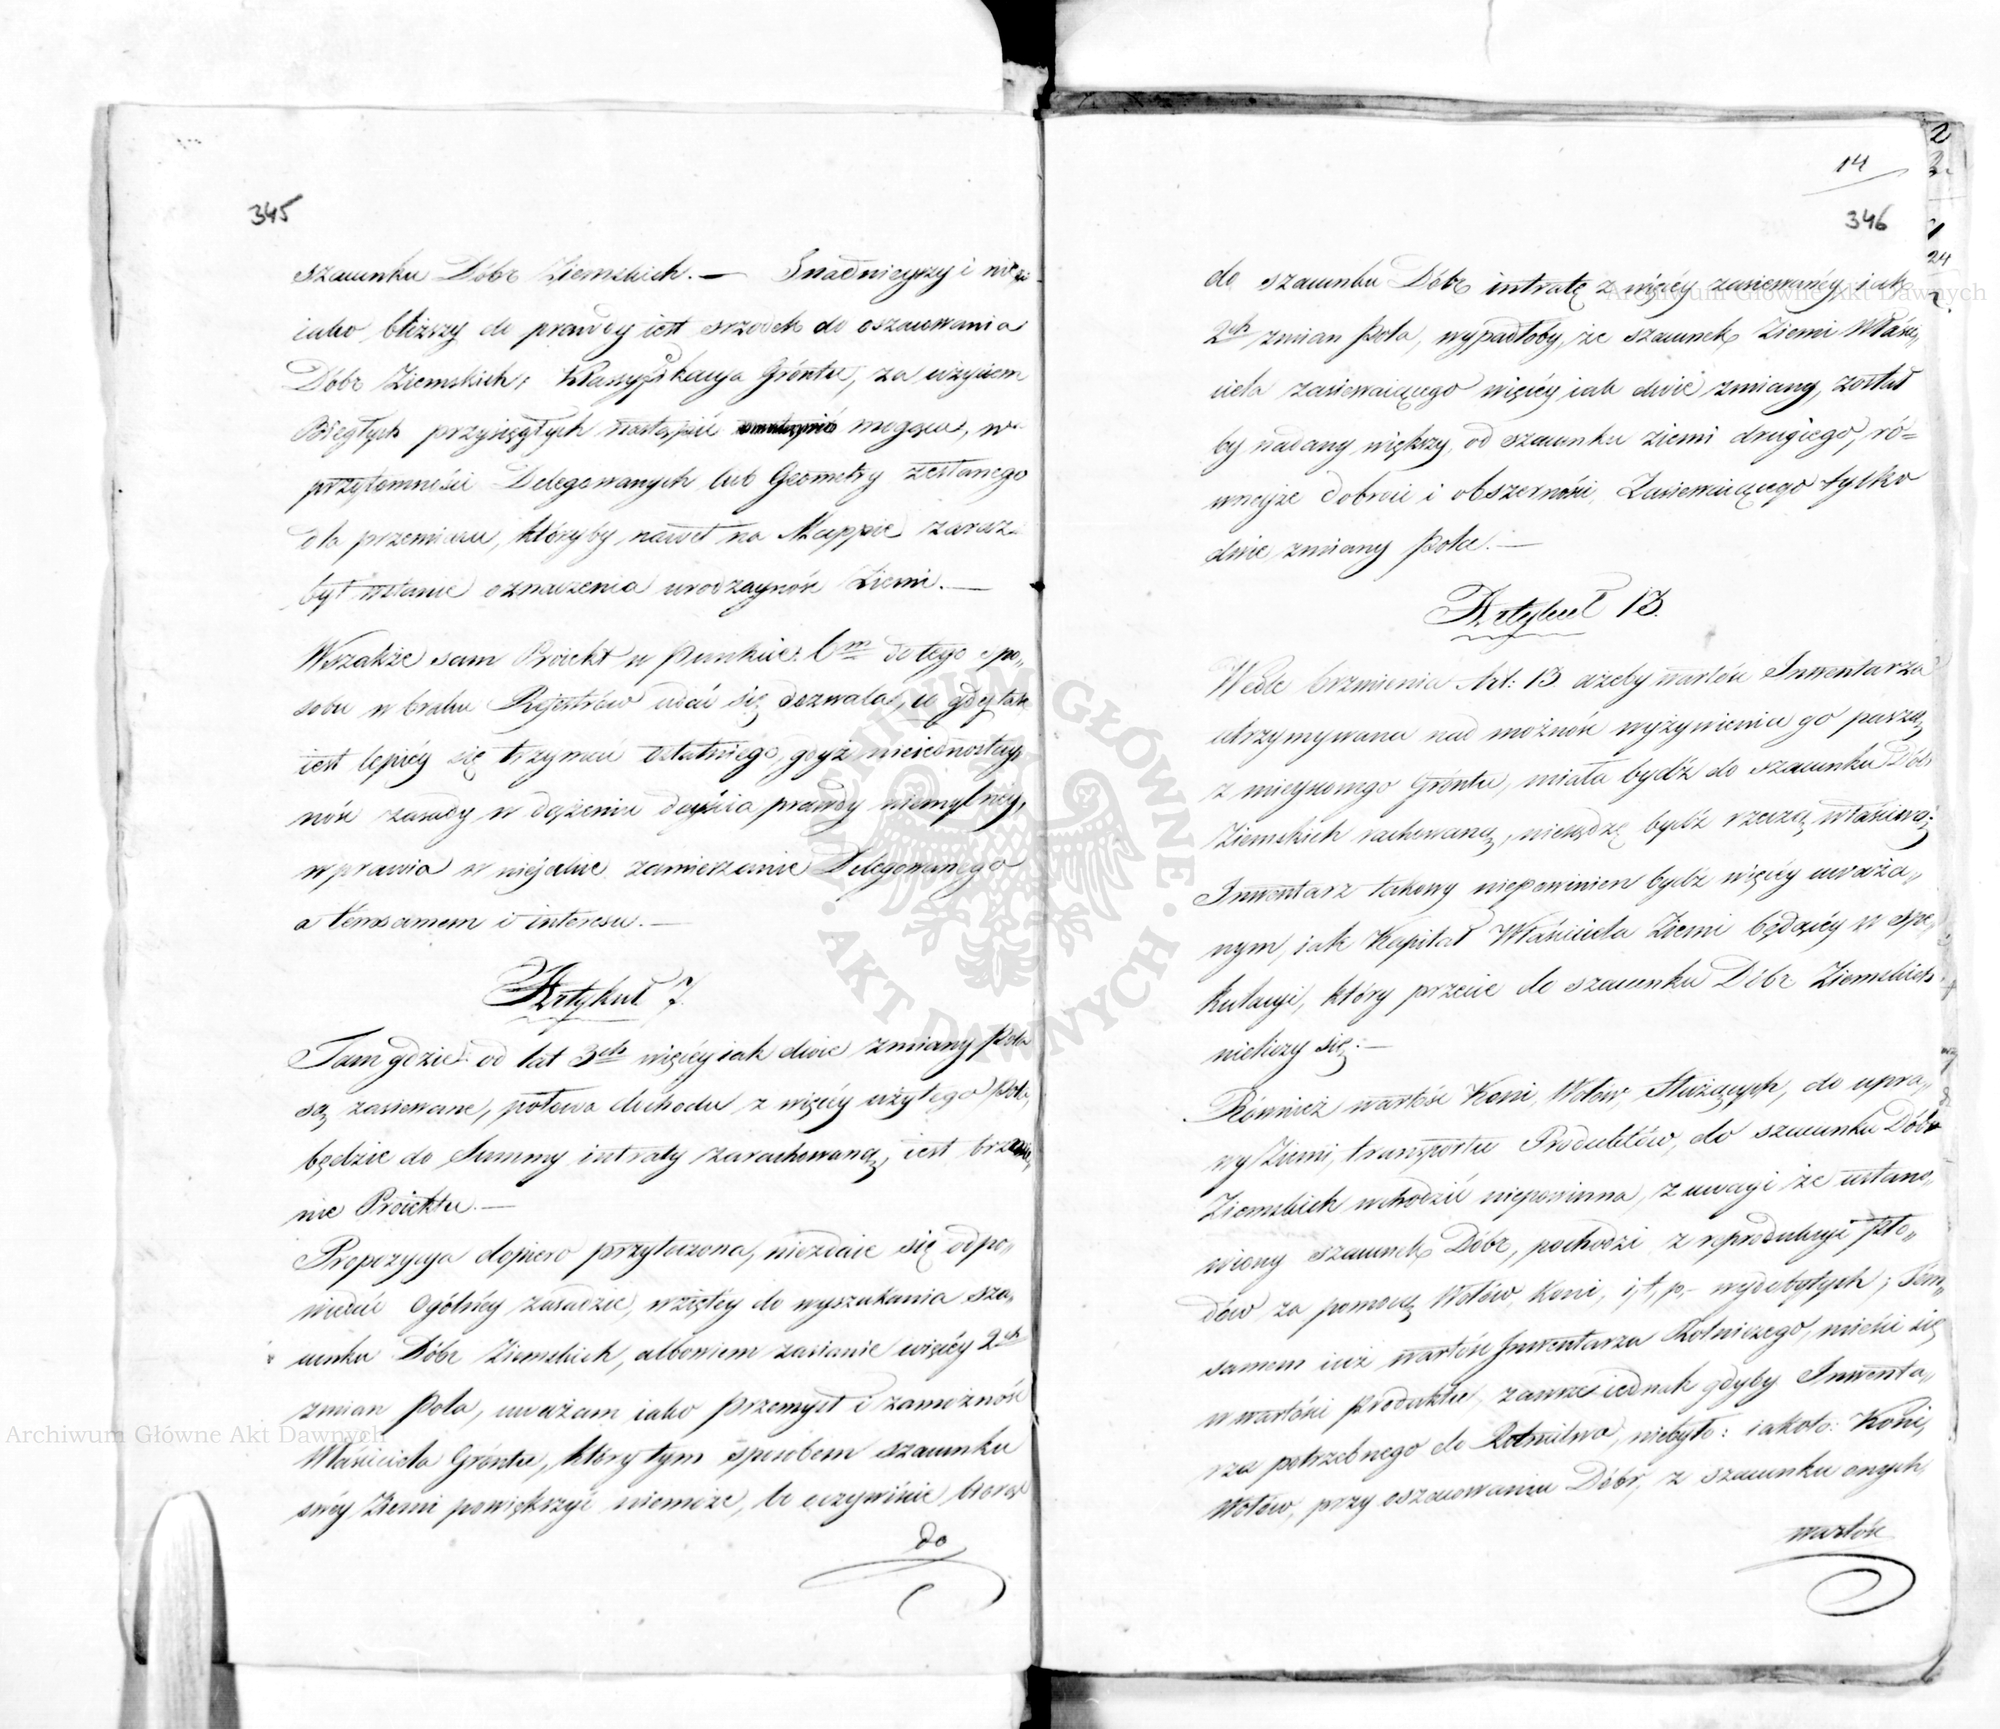 345
szacunku Dóbr Ziemskich. — Snadnieyszy i nie
iako bliższy do prawdy iest srzodek do oszacowania
Dóbr Ziemskich; Klassyfikacya Gróntu, za użyciem
Biegłych przysięgłych nastąpić mogąca, w
przytomności Delegowanych lub Geometry zesłanego
dla przemiaru, któryby nawet na Mappie zaraz
był wstanie oznaczenia urodzayność Ziemi. —
Wszakże sam Proiekt w punkcie 6m do tego spo„
sobu w braku Rejestrów udać się dozwala, a gdy tak
iest lepiéy się trzymać ostatniego, gdyż nieiednostay„
ność zasady w dążeniu doyścia prawdy niemylnéy,
wprawia w niejakie zamierzanie Delegowanego
a témsamem i interesu. —
Artykuł 7.
Tam gdzie od lat 3ch więcéy iak dwie zmiany Pola
są zasiewane, połowa dochodu z więcéy użytego Pola,
będzie do Summy intraty zarachowaną, iest brzmie„
nie Proiektu. —
Propozycya dopiero przytoczona, niezdaie się odpo„
wiedać Ogólnéy zasadzie, wziętéy do wyszukania sza„
cunku Dóbr Ziemskich, albowiem zasianie więcéy 2ch
zmian Pola, uważam iako przemysł i zamożność
Właściciela Gróntu, który tym sposobem szacunku
swéy Ziemi powiększyć niemoże, bo oczywiście biorąc
do
14
346
do szacunku Dóbr intratę z więcéy zasiewanéy, iak
2ch zmian Pola, wypadłoby, że szacunek Ziemi Właści„
ciela zasiewaiącego więcéy iak dwie zmiany, został
by nadany większy, od szacunku ziemi drugiego, ró=
wnejże dobroci i obszerności, Zasiewaiącego tylko
dwie zmiany Pola. —
Artykuł 13.
Wedle brzmienia Art: 13. ażeby wartość Inwentarza
utrzymywana nad możność wyżywienia go paszą
z mieyscowego Gróntu, miała bydź do szacunku Dóbr
Ziemskich rachowaną, niesądzę bydź rzeczą właściwą;
Inwentarz takowy niepowinien bydź więcéy uważa„
nym, iak Kapitał Właściciela Ziemi będący w spe„
kulacyi, który przecie do szacunku Dóbr Ziemskich
nieliczy się. —
Również wartość Koni, Wołów, Służących, do upra„
wy Ziemi, transportu Produktów, do szacunku Dóbr
Ziemskich wchodzić niepowinna, z uwagi że ustano„
wiony szacunek Dóbr, pochodzi z reprodukcyi pło„
dów za pomocą Wołów, Koni, i, t, p, – wydobytych; Tém„
samem iuż wartość Inwentarza Rolniczego, mieści się
w wartości Produktu, zawsze iednak gdyby Inwenta„
rza potrzebnego do Rolnictwa, niebyło: iakoto: Koni,
Wołów, przy oszacowaniu Dóbr, z szacunku onych
wartość